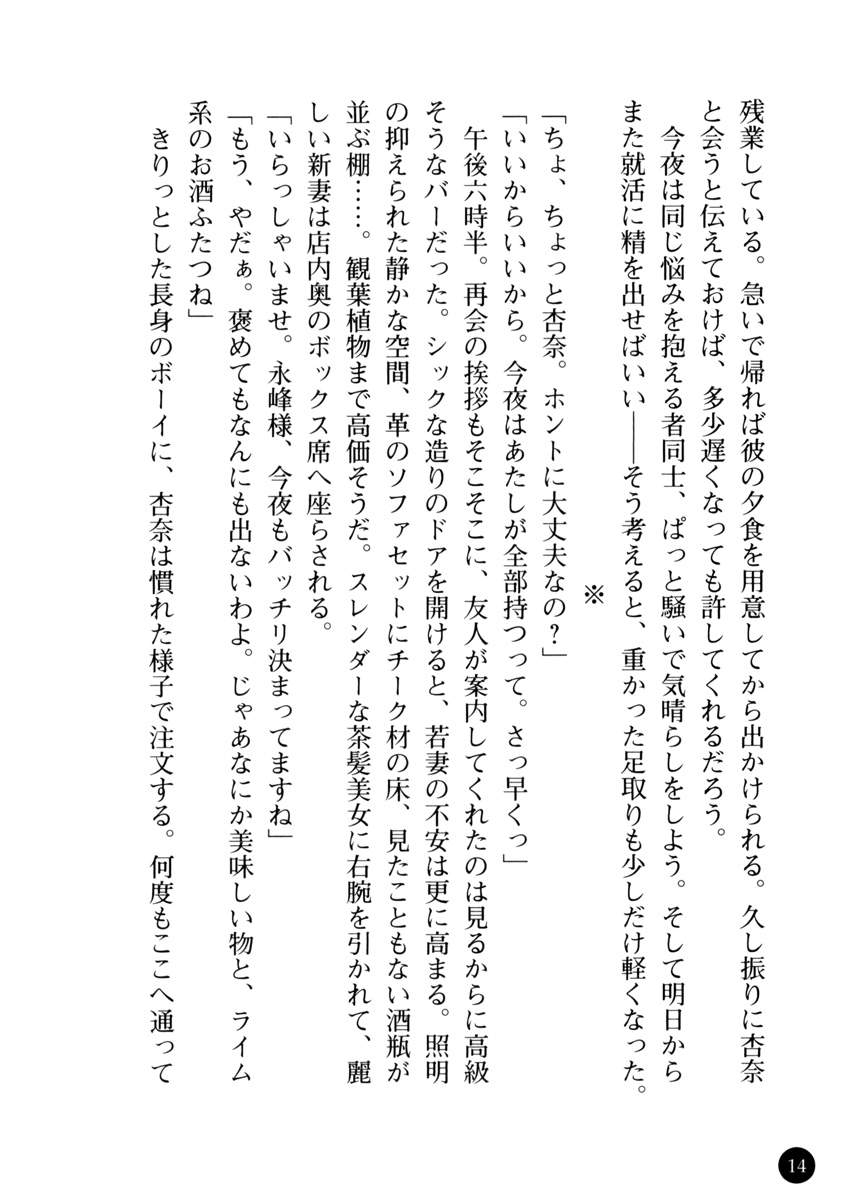 残業している。急いで帰れば彼の夕食を用意してから出かけられる。久し振りに杏奈
と会うと伝えておけば、多少遅くなっても許してくれるだろう。
　今夜は同じ悩みを抱える者同士、ぱっと騒いで気晴らしをしよう。そして明日から
また就活に精を出せばいい――そう考えると、重かった足取りも少しだけ軽くなった。
※
「ちょ、ちょっと杏奈。ホントに大丈夫なの？」
「いいからいいから。今夜はあたしが全部持つって。さっ早くっ」
　午後六時半。再会の挨拶もそこそこに、友人が案内してくれたのは見るからに高級
そうなバーだった。シックな造りのドアを開けると、若妻の不安は更に高まる。照明
の抑えられた静かな空間、革のソファセットにチーク材の床、見たこともない酒瓶が
並ぶ棚……。観葉植物まで高価そうだ。スレンダーな茶髪美女に右腕を引かれて、麗
しい新妻は店内奥のボックス席へ座らされる。
「いらっしゃいませ。永峰様、今夜もバッチリ決まってますね」
「もう、やだぁ。褒めてもなんにも出ないわよ。じゃあなにか美味しい物と、ライム
系のお酒ふたつね」
　きりっとした長身のボーイに、杏奈は慣れた様子で注文する。何度もここへ通って
14